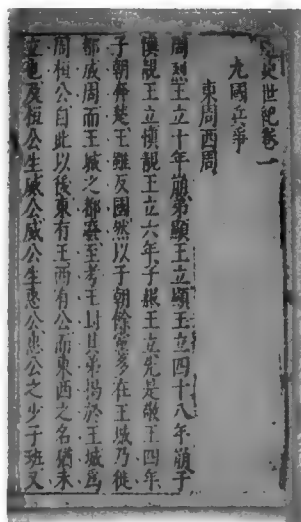 史世紀卷一
九國兵爭
東周西周
周烈王立十年崩弟顯王立顯王立四十八年崩子
慎靚王立慎靚王立六年子赧王立先是敬王四年
子朝奔楚王雖反國然以子朝餘黨多在王城乃徙
都成周而王城之都廢至考王封其弟揭於王城為
周桓公自此以後東有王西有公而東西之名猶未
立也及桓公生威公威公生惠公惠公之少子班又